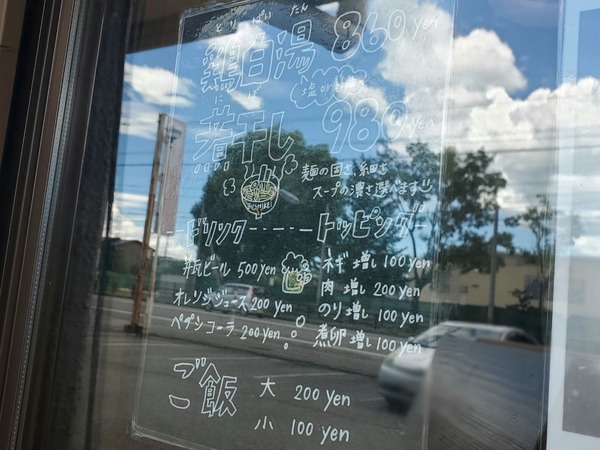 とりぱいたん
鶏白湯 860yen
塩or
にぼ
煮干し 980yen
麺の固さ、
スープの濃さ選べます
ドリンク トッピング
瓶ビール 500yen ネギ増し 100yen
肉増し 200yen
オレンジジュース 200yen のり増し 100yen
ペプシコーラ 200yen 煮卵増し 100yen
ご飯 大 200yen
小 100yen